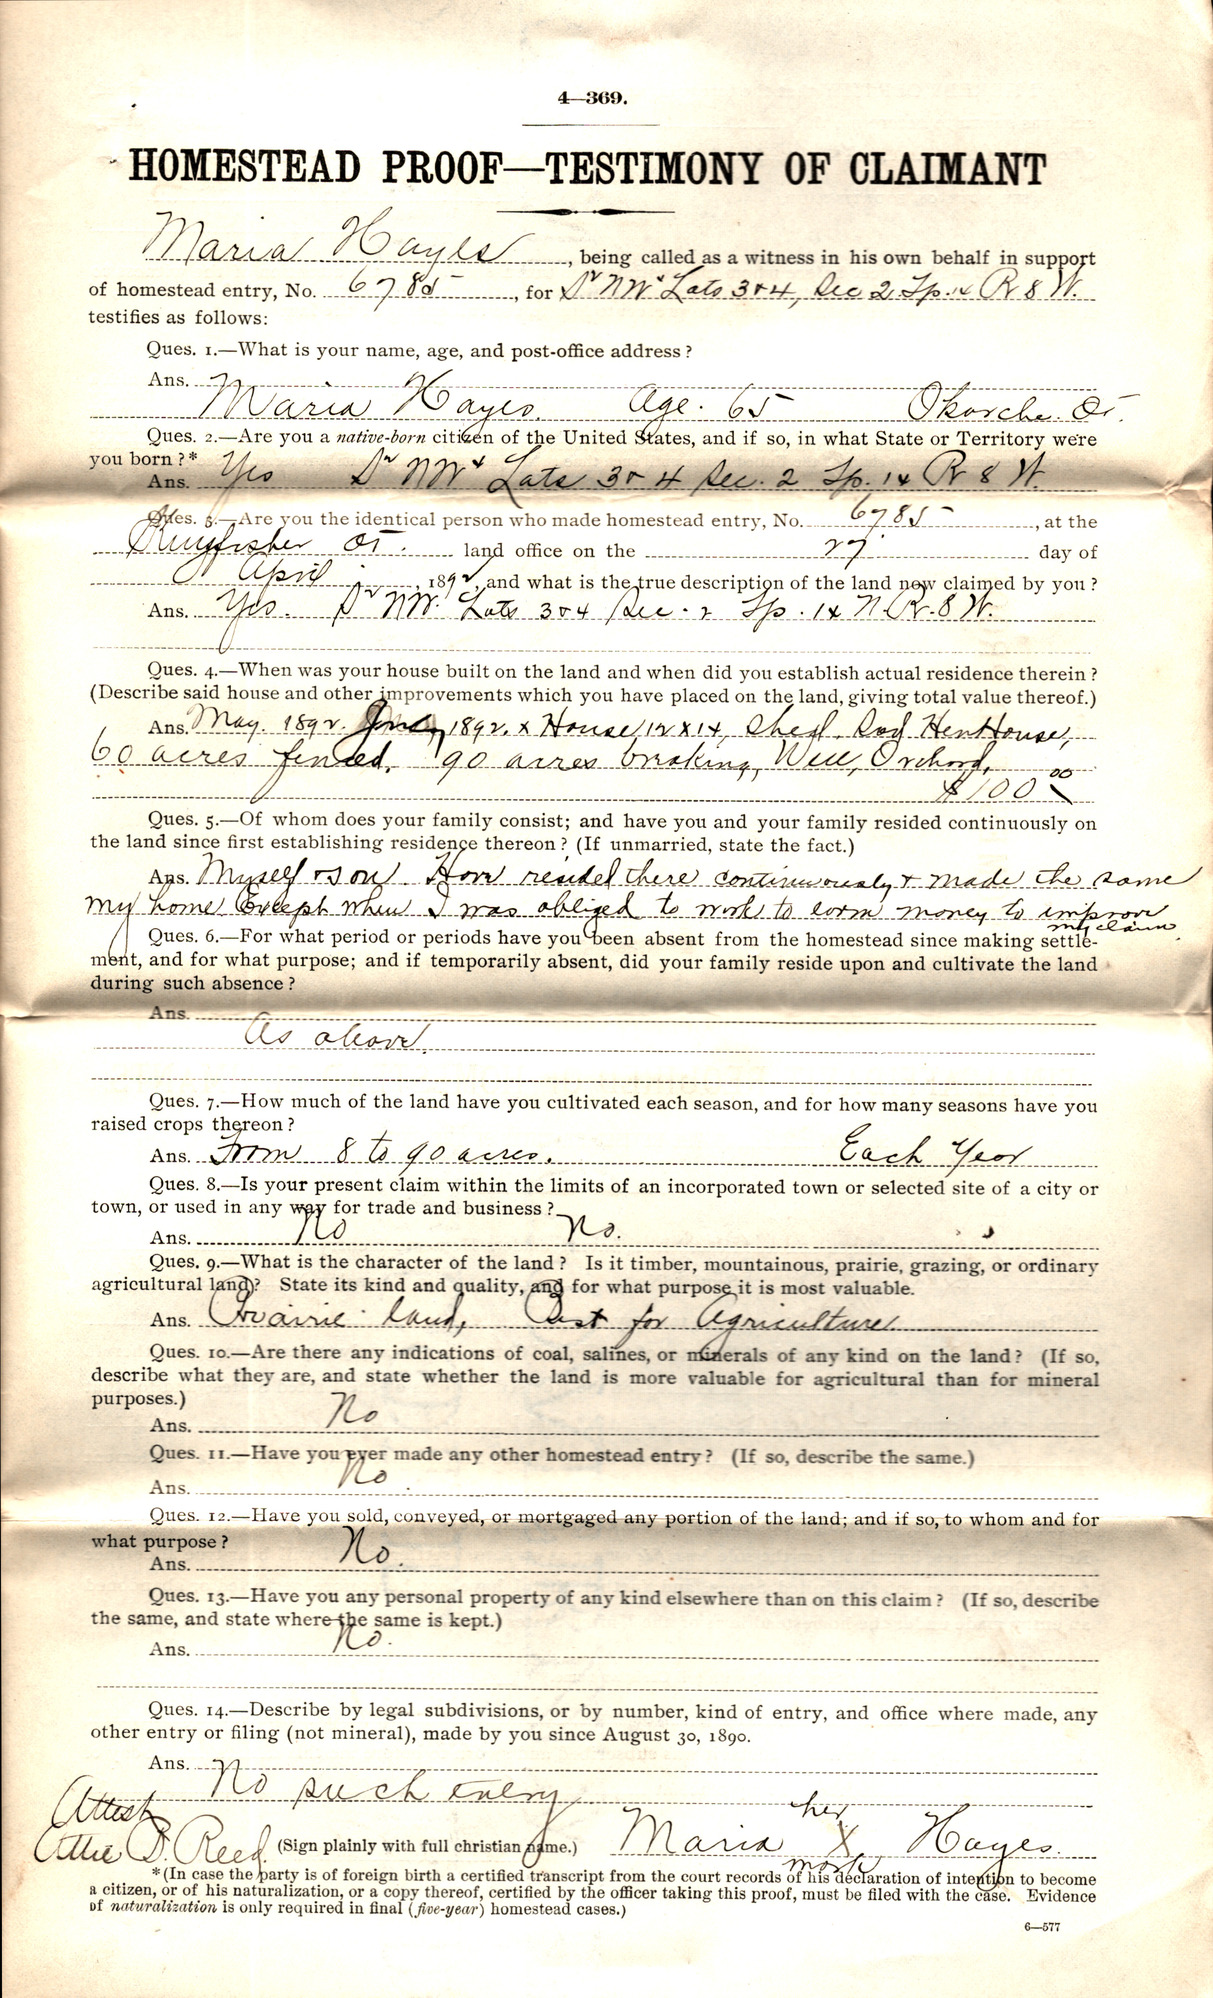 4—369.
HOMESTEAD PROOF—TESTIMONY OF CLAIMANT
Maria Hayes, being called as a witness in his own behalf in support
of homestead entry, No. 6785, for S2 NW4 Lots 3 & 4, Sec 2 Tp. 14 R 8 W.
testifies as follows:
Ques. 1.—What is your name, age, and post-office address?
Ans.
Maria Hayes. Age. 65 Okarche. OT.
Ques. 2.—Are you a native-born citizen of the United States, and if so, in what State or Territory were
you born?*
Ans. Yes S2 NW4 Lots 3 & 4 Sec. 2 Tp. 14 R 8 W.
Ques. 3.—Are you the identical person who made homestead entry, No. 6785, at the
Kingfisher OT. land office on the 27 day of
April, 1892, and what is the true description of the land now claimed by you?
Ans. Yes. S2 NW. Lots 3 & 4 Sec. 2 Tp. 14 N. R. 8 W.
Ques. 4.—When was your house built on the land and when did you establish actual residence therein?
(Describe said house and other improvements which you have placed on the land, giving total value thereof.)
Ans. May. 1892. June, 1892. x House, 12 x 14, Shed. Sod HenHouse,
60 acres fenced, 90 acres breaking, Well, Orchard,
$100 00
Ques. 5.—Of whom does your family consist; and have you and your family resided continuously on
the land since first establishing residence thereon? (If unmarried, state the fact.)
Ans. Myself & son. Have resided there continuously & made the same
my home. Except when I was obliged to work to earn money to improve
my claim.
Ques. 6.—For what period or periods have you been absent from the homestead since making settle-
ment, and for what purpose; and if temporarily absent, did your family reside upon and cultivate the land
during such absence?
Ans.
As above.
Ques. 7.—How much of the land have you cultivated each season, and for how many seasons have you
raised crops thereon?
Ans. From 8 to 90 acres. Each Year
Ques. 8.—Is your present claim within the limits of an incorporated town or selected site of a city or
town, or used in any way for trade and business?
Ans. No No.
Ques. 9.—What is the character of the land? Is it timber, mountainous, prairie, grazing, or ordinary
agricultural land? State its kind and quality, and for what purpose it is most valuable.
Ans. Prairie land, Best for Agriculture
Ques. 10.—Are there any indications of coal, salines, or minerals of any kind on the land? (If so,
describe what they are, and state whether the land is more valuable for agricultural than for mineral
purposes.)
Ans. No
Ques. 11.—Have you ever made any other homestead entry? (If so, describe the same.)
Ans. No.
Ques. 12.—Have you sold, conveyed, or mortgaged any portion of the land; and if so, to whom and for
what purpose?
Ans. No.
Ques. 13.—Have you any personal property of any kind elsewhere than on this claim? (If so, describe
the same, and state where the same is kept.)
Ans. No.
Ques. 14.—Describe by legal subdivisions, or by number, kind of entry, and office where made, any
other entry or filing (not mineral), made by you since August 30, 1890.
Ans. No such entry
Attest
her
Attie B. Reed (Sign plainly with full christian name.) Maria X Hayes.
mark
*(In case the party is of foreign birth a certified transcript from the court records of his declaration of intention to become
a citizen, or of his naturalization, or a copy thereof, certified by the officer taking this proof, must be filed with the case. Evidence
of naturalization is only required in final (five-year) homestead cases.)
6—577